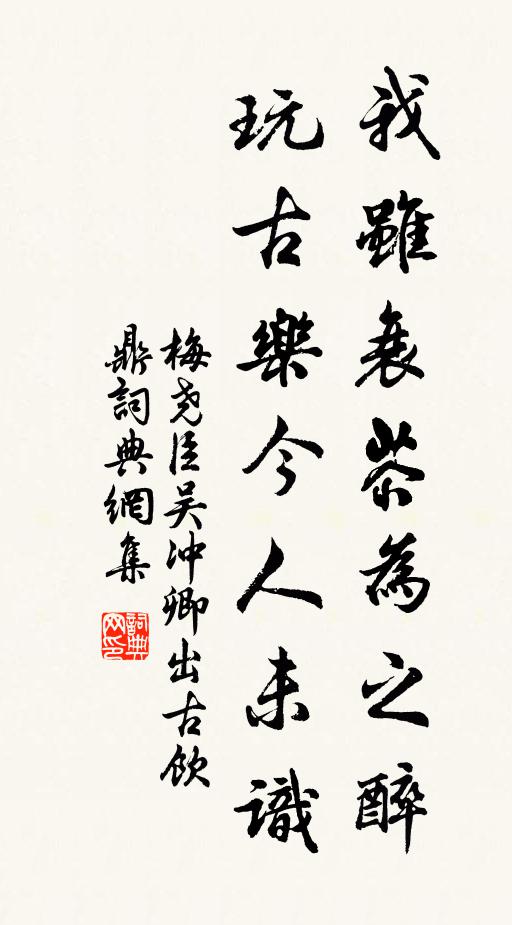 我雖衰苶為之醉
玩古樂今人未識
梅尧臣吴冲卿出古飲
鼎詞典網集
詞典
网印